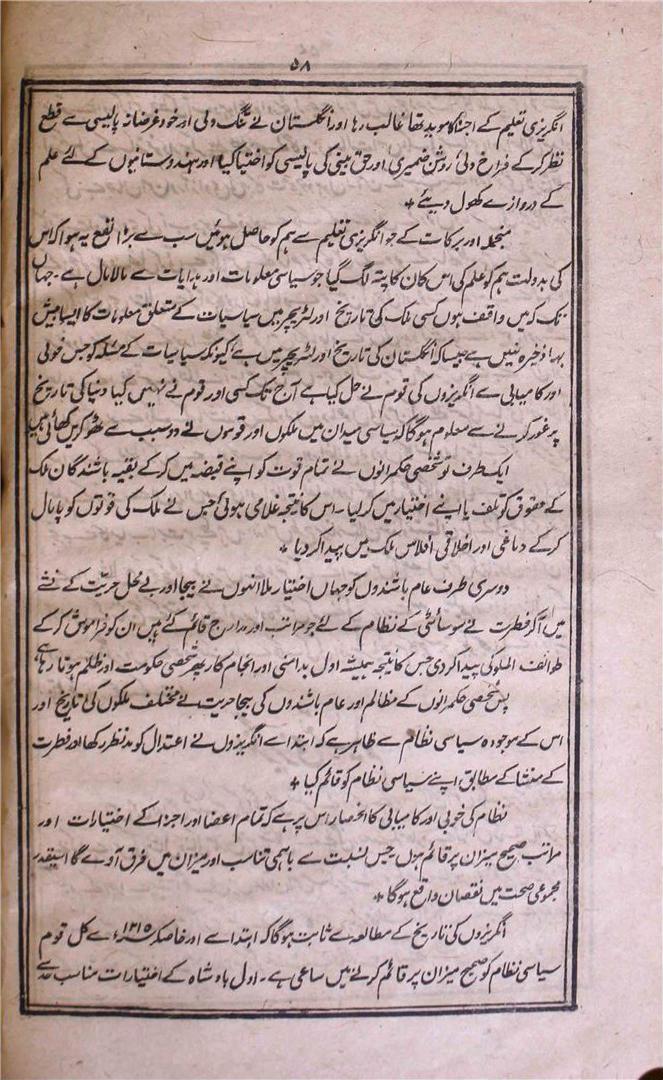 ۵۸
انگریزی تعلیم کے اجزا کا موید تھا غالب رہا اور انگلستان نے تنگ دلی اور خودغرضانہ پالیسی سے قطع
نظر کر کے فراخ دلی، روشن ضمیری اور حق بینی کی پالیسی کو اختیار کیا اور ہندوستانیوں کے لئے علم
کے دروازے کھول دیئے *
منجملہ اور برکات کے جو انگریزی تعلیم سے ہم کو حاصل ہوئیں سب سے بڑا نفع یہ ہوا کہ اس
کی بدولت ہم کو علم کی اس کان کا پتہ لگ گیا جو سیاسی معلومات اور ہدایات سے مالامال ہے۔ جہاں
تک کہ میں واقف ہوں کسی ملک کی تاریخ اور لٹریچر میں سیاسیات کے متعلق معلومات کا ایسا بیش
بہا ذخیرہ نہیں ہے جیسا کہ انگلستان کی تاریخ اور لٹریچر میں ہے کیونکہ سیاسیات کے مسئلہ کو جس خوبی
اور کامیابی سے انگریزوں کی قوم نے حل کیا ہے آج تک کسی اور قوم نے نہیں کیا دنیا کی تاریخ
پر غور کرنے سے معلوم ہوگا کہ سیاسی میدان میں ملکوں اور قوموں نے دو سبب سے ٹھوکریں کھائی ہیں
ایک طرف تو شخصی حکمرانوں نے تمام قوت کو اپنے قبضہ میں کر کے بقیہ باشندگان ملک
کے حقوق کو تلف یا اپنے اختیار میں کر لیا۔ اس کا نتیجہ غلامی ہوئی جس نے ملک کی قوتوں کو پامال
کر کے دماغی اور اخلاقی افلاس ملک میں پیدا کر دیا *
دوسری طرف عام باشندوں کو جہاں اختیار ملا انہوں نے بیجا اور بے محل حریت کے نشے
میں آکر فطرت نے سوسائٹی کے نظام کے لئے جو مراتب اور مدارج قائم کئے ہیں ان کو فراموش کر کے
طوائف الملوکی پیدا کر دی جس کا نتیجہ ہمیشہ اول بدامنی اور انجام کار پھر شخصی حکومت اور ظلم ہوتا رہا ہے
پس شخصی حکمرانوں کے مظالم اور عام باشندوں کی بیجا حریت نے مختلف ملکوں کی تاریخ اور
اس کے موجودہ سیاسی نظام سے ظاہر ہے کہ ابتدا سے انگریزوں نے اعتدال کو مدنظر رکھا اور فطرت
کے منشا کے مطابق اپنے سیاسی نظام کو قائم کیا *
نظام کی خوبی اور کامیابی کا انحصار اس پر ہے کہ تمام اعضا اور اجزا کے اختیارات اور
مراتب صحیح میزان پر قائم ہوں جس نسبت سے باہمی تناسب اور میزان میں فرق آوے گا اسیقدر
مجموعی صحت میں نقصان واقع ہوگا *
انگریزوں کی تاریخ کے مطالعہ سے ثابت ہوگا کہ ابتدا سے اور خاصکر ۱۲۱۵ء سے کل قوم
سیاسی نظام کو صحیح میزان پر قائم کرنے میں ساعی ہے۔ اول بادشاہ کے اختیارات مناسب حد سے